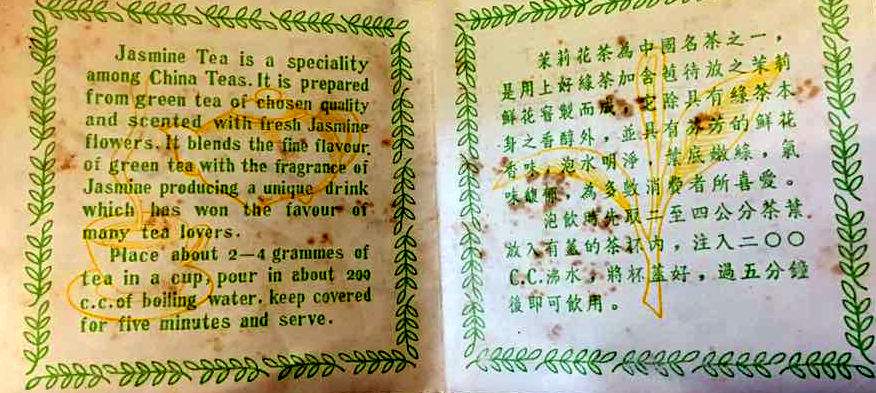 Jasmine Tea is a speciality
among China Teas. It is prepared
from green tea of chosen quality
and scented with fresh Jasmine
flowers. It blends the fine flavour
of green tea with the fragrance of
Jasmine producing a unique drink
which has won the favour of
many tea lovers.
Place about 2—4 grammes of
tea in a cup, pour in about 200
c.c. of boiling water. keep covered
for five minutes and serve.
茉莉花茶為中國名茶之一，
是用上好綠茶加含苞待放之茉莉
鮮花窨製而成，它除具有綠茶本
身之香醇外，並具有芬芳的鮮花
香味，泡水明淨，葉底嫩綠，氣
味馥郁，為多數消費者所喜愛。
泡飲時先取二至四公分茶葉
放入有蓋的茶杯內，注入二〇〇
C.C.沸水，將杯蓋好，過五分鐘
後即可飲用。